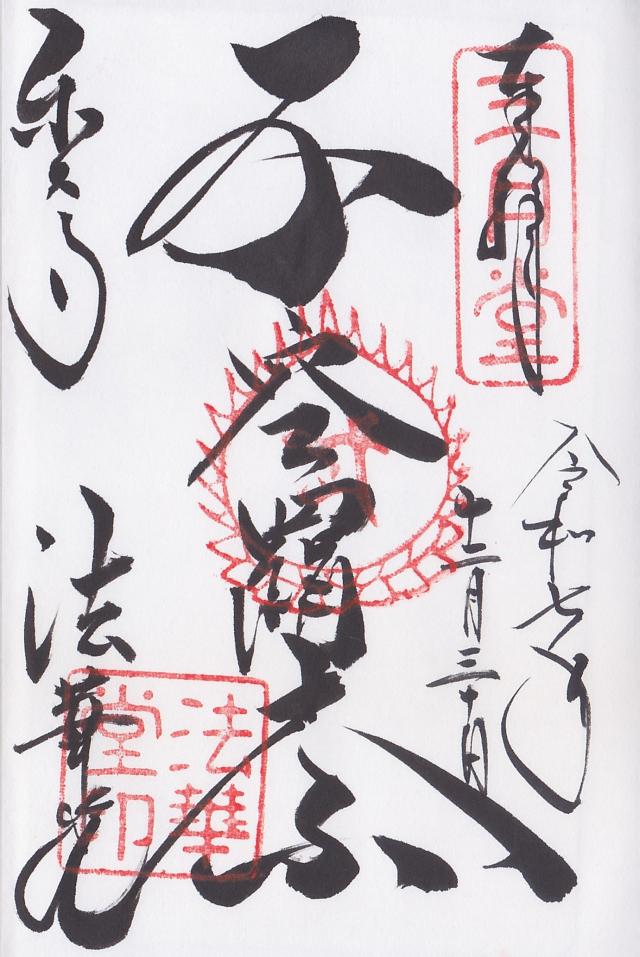 奉拝
三月堂
令和七年
十二月三十日
不空羂索
東大寺
法華堂
法華
堂印